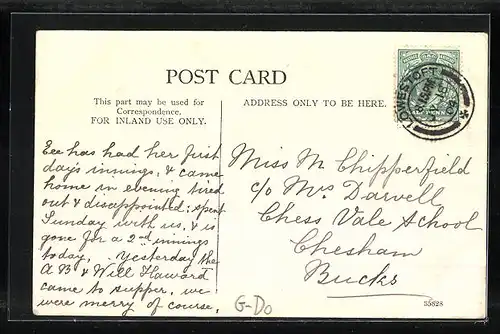 POST CARD
This part may be used for
Correspondence.
FOR INLAND USE ONLY.
ADDRESS ONLY TO BE HERE.
LOWESTOFT
has had her first
days innings, & came
home in evening tired
out & disappointed: spent
Sunday with us, & is
gone for a 2nd innings
today. Yesterday the
A B & Will Haward
came to supper. we
were merry of course.
Miss M Chipperfield
c/o Mrs Darvell
Chess Vale School
Chesham
Bucks
G-Do
55828